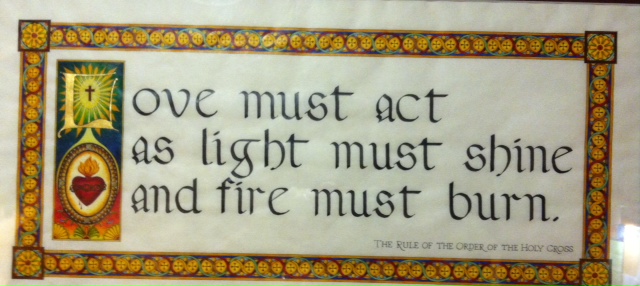 Love must act
as light must shine
and fire must burn.
THE RULE OF THE ORDER OF THE HOLY CROSS